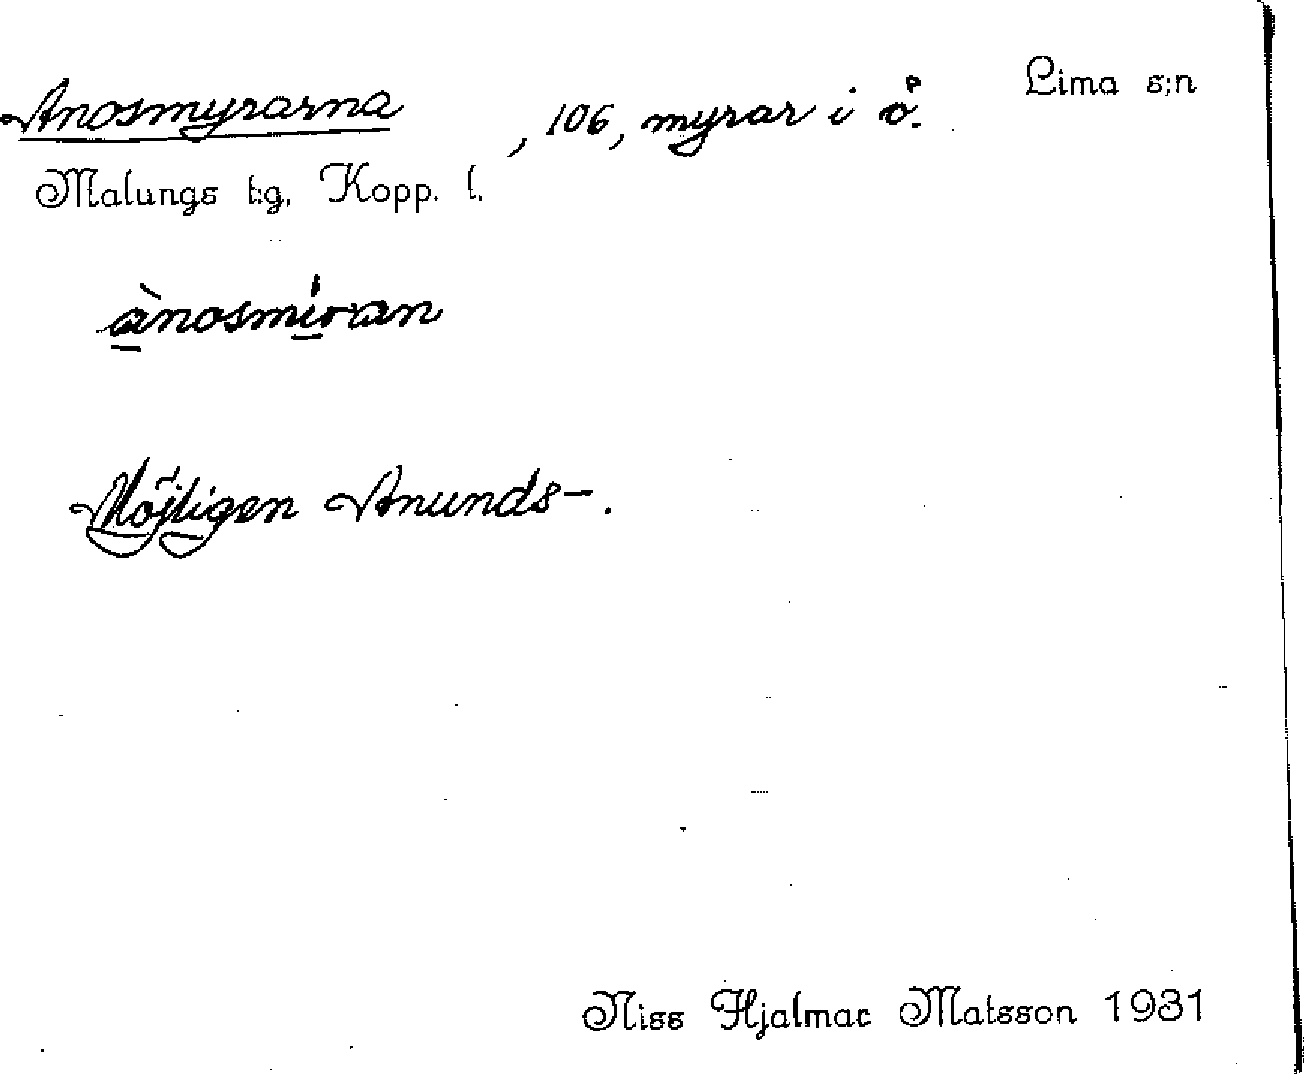 Lima s:n
Anosmyrarna, 106, myrar i ö.
Malungs t:g, Kopp. l.
ànosmíran
Möjligen Anunds-.
Niss Hjalmar Matsson 1931